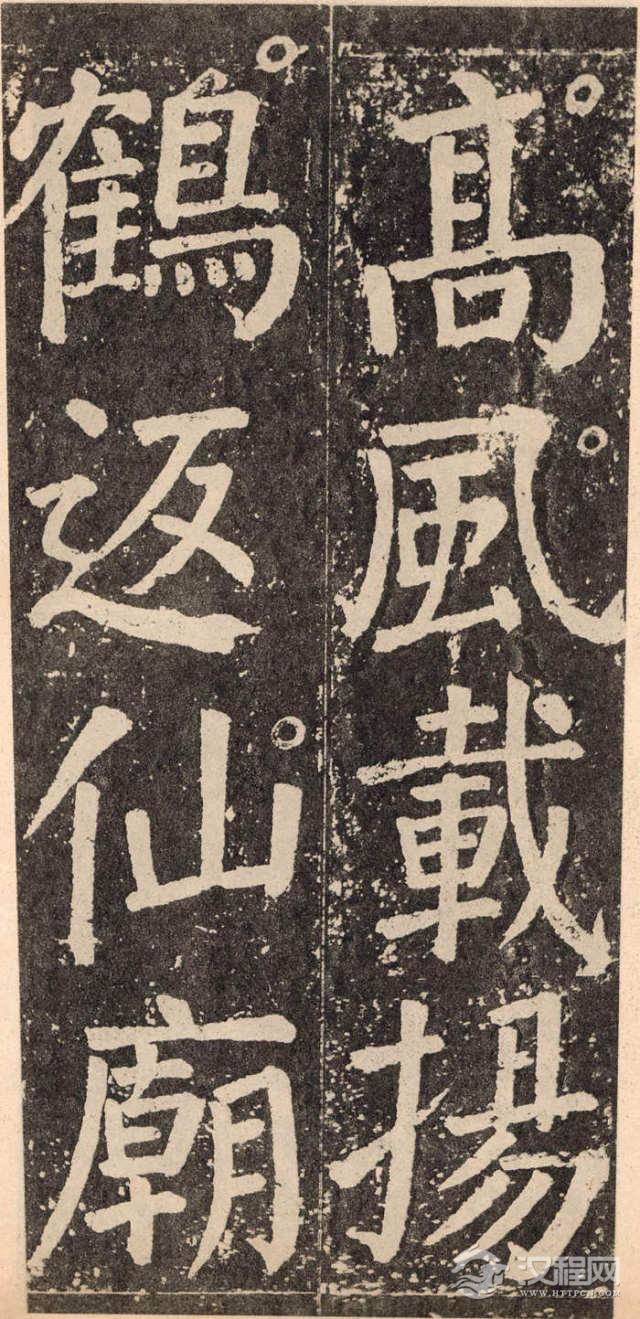 高風載揚
鶴返仙廟
汉程网
WWW.HTTPCN.COM